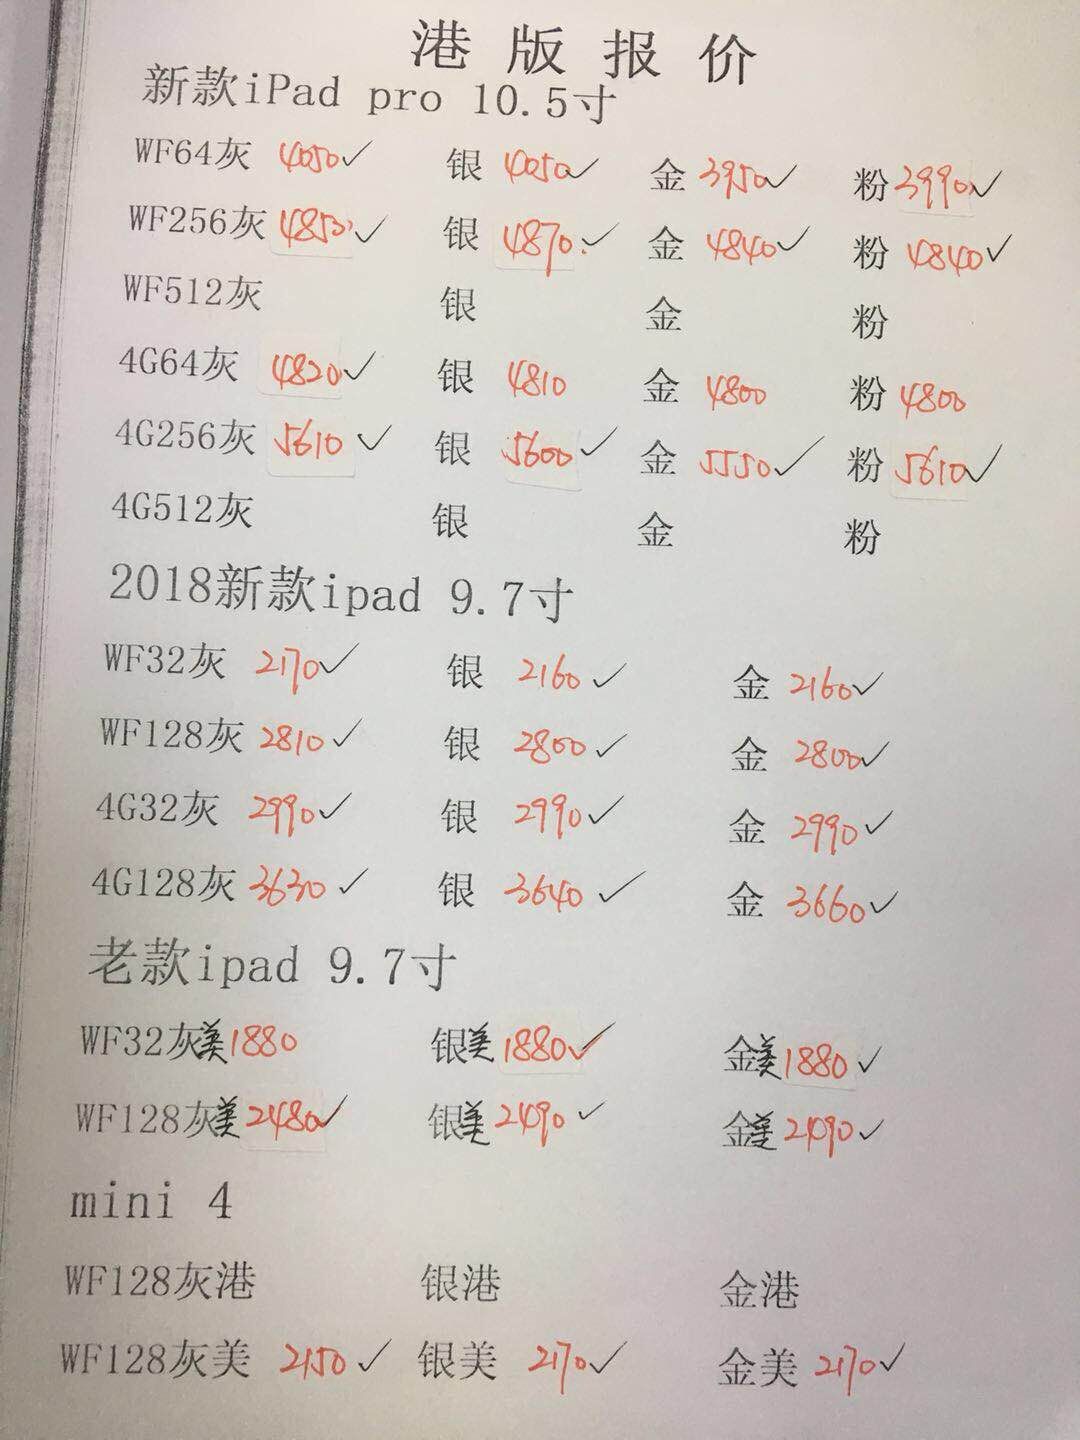 港版报价
新款iPad pro 10.5寸
WF64灰 4050✓ 银 4050✓ 金 3950✓ 粉 3990✓
WF256灰 4850✓ 银 4870✓ 金 4840✓ 粉 4840✓
WF512灰 银 金 粉
4G64灰 4820✓ 银 4810 金 4800 粉 4800
4G256灰 5610✓ 银 5600✓ 金 5550✓ 粉 5610✓
4G512灰 银 金 粉
2018新款ipad 9.7寸
WF32灰 2170✓ 银 2160✓ 金 2160✓
WF128灰 2810✓ 银 2800✓ 金 2800✓
4G32灰 2990✓ 银 2990✓ 金 2990✓
4G128灰 3630✓ 银 3640✓ 金 3660✓
老款ipad 9.7寸
WF32灰美1880 银美1880✓ 金美1880✓
WF128灰美2480✓ 银美2490✓ 金美2490✓
mini 4
WF128灰港 银港 金港
WF128灰美 2150✓ 银美 2170✓ 金美 2170✓